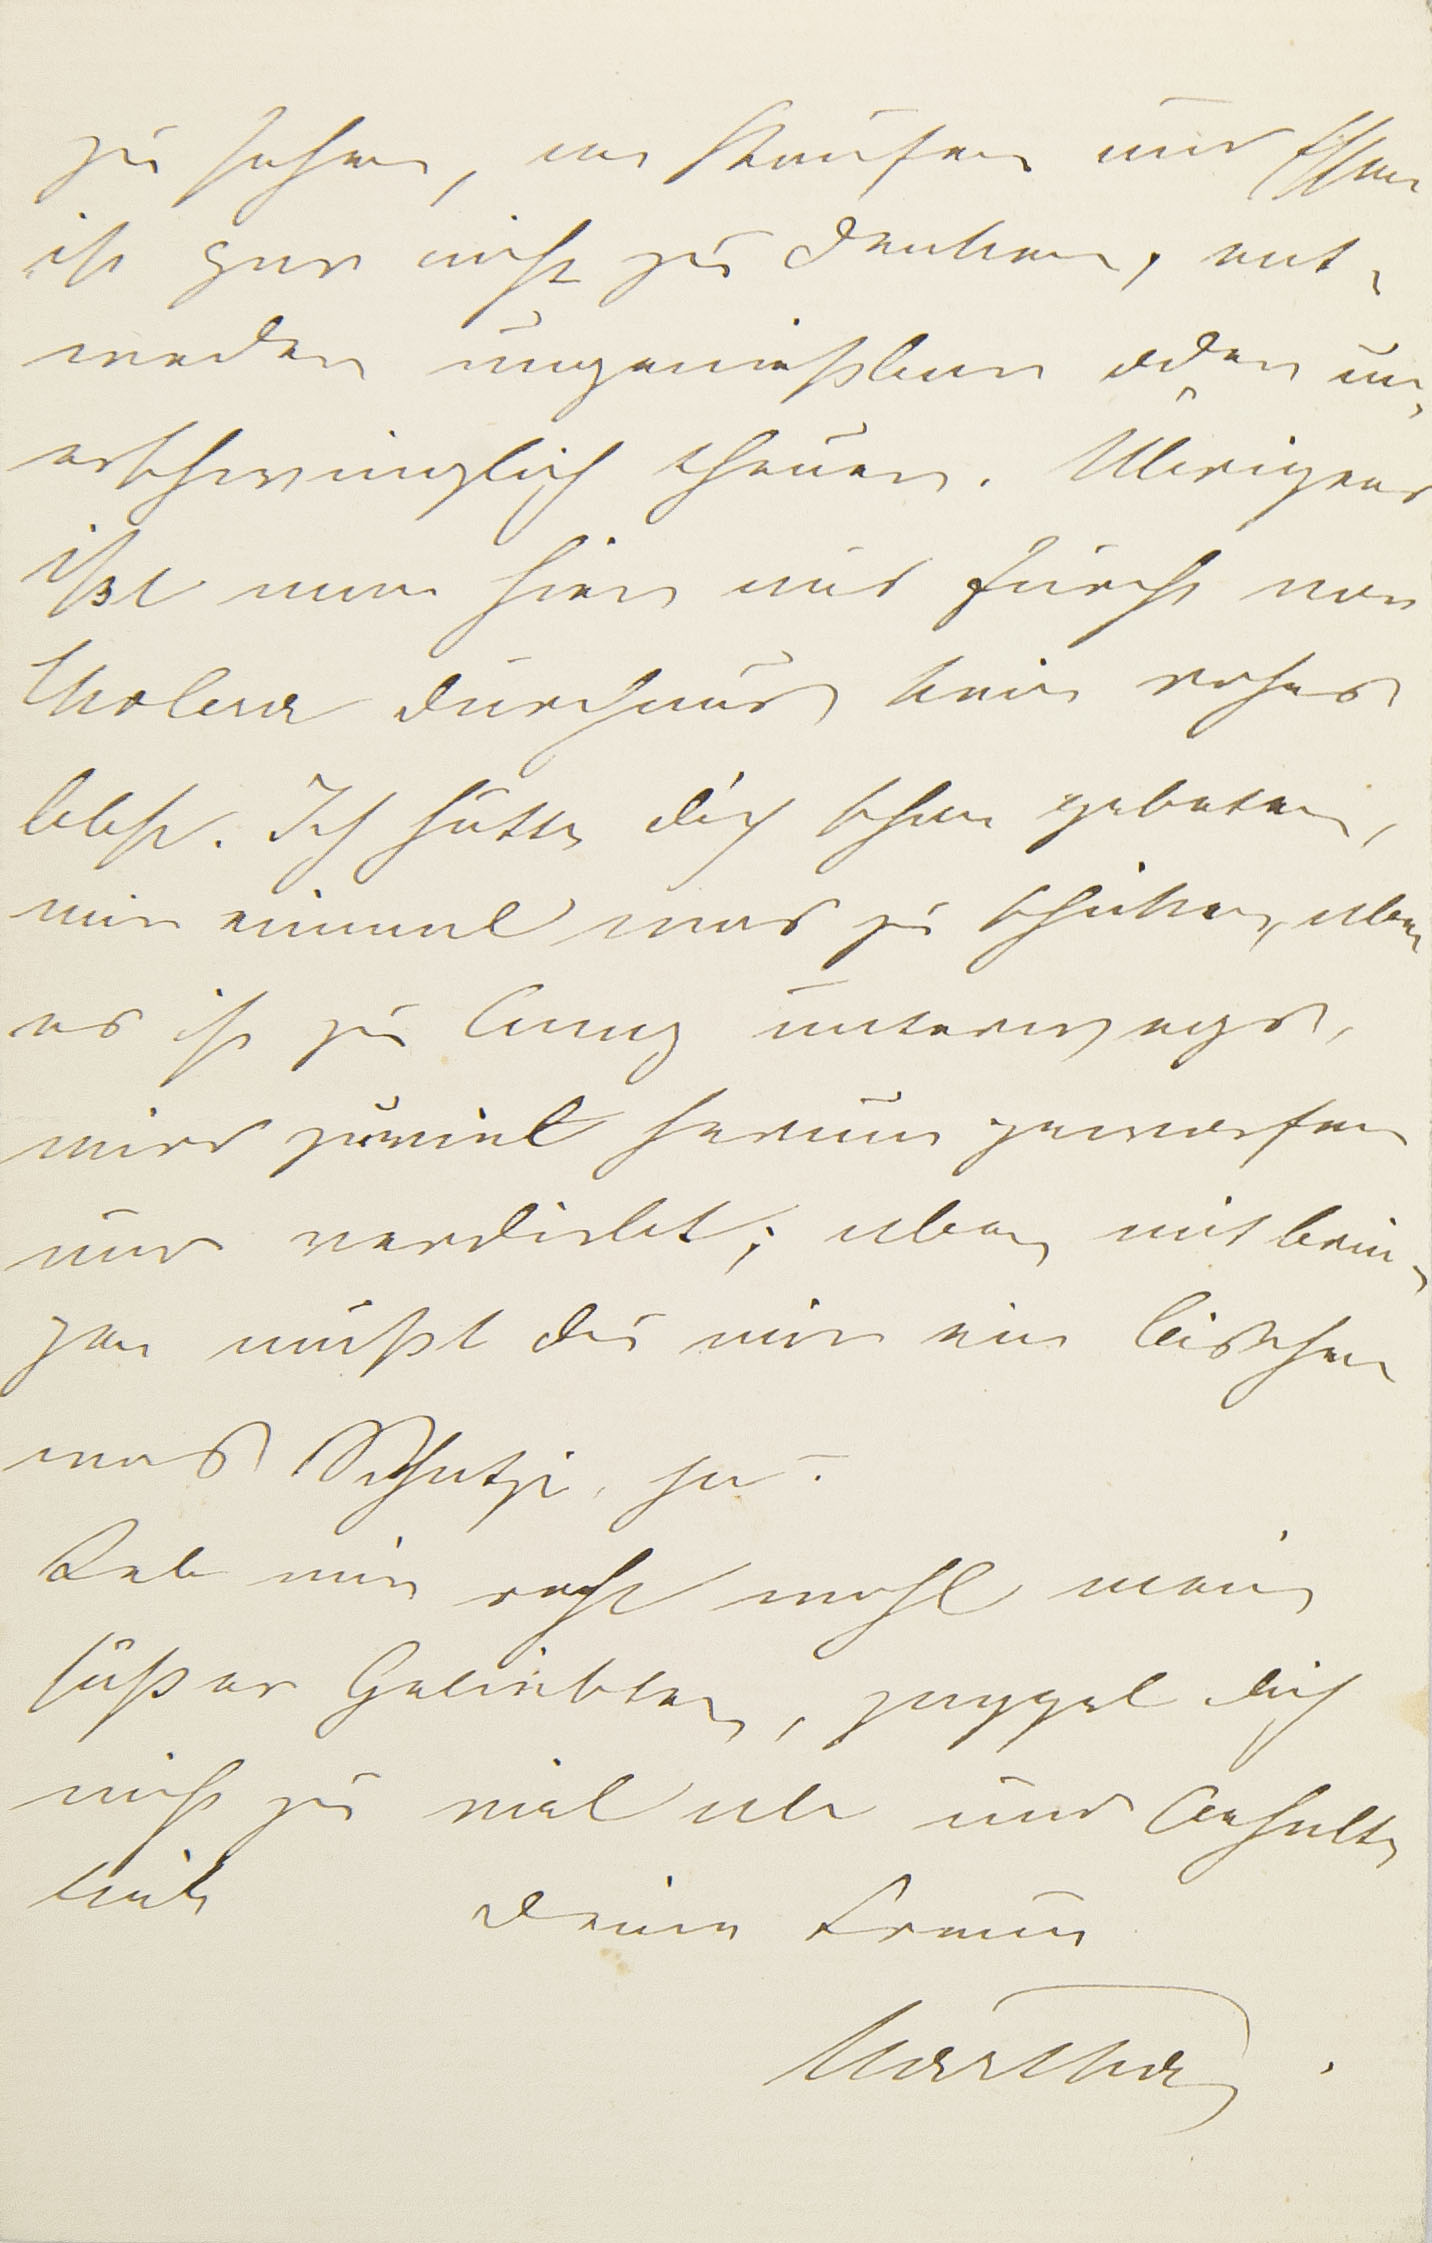 zu sehen, an Kaufen und Essen
ist gar nicht zu denken, ent-
weder ungenießbar oder un-
erschwinglich theuer. Übrigens
ißt man hier aus Furcht vor
Cholera durchaus kein rohes
Obst. Ich hätte dich schon gebeten,
mir einmal was zu schicken, aber
es ist zu lang unterwegs,
wird zuviel herum geworfen
und verdirbt; aber mit brin-
gen mußt du mir ein bischen
was Schatzi, ja?
Leb mir recht wohl mein
süßer Geliebter, zappel dich
nicht zu viel ab und behalte
lieb Deine Braut
Martha.